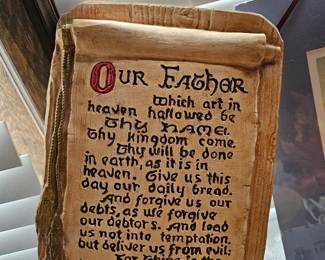 Our Father
Which art in
heaven hallowed be
thy name.
thy kingdom come.
Thy will be done
in earth, as it is in
heaven. Give us this
day our daily bread.
And forgive us our
debts, as we forgive
our debtors. And lead
us not into temptation,
but deliver us from evil:
For thine is the